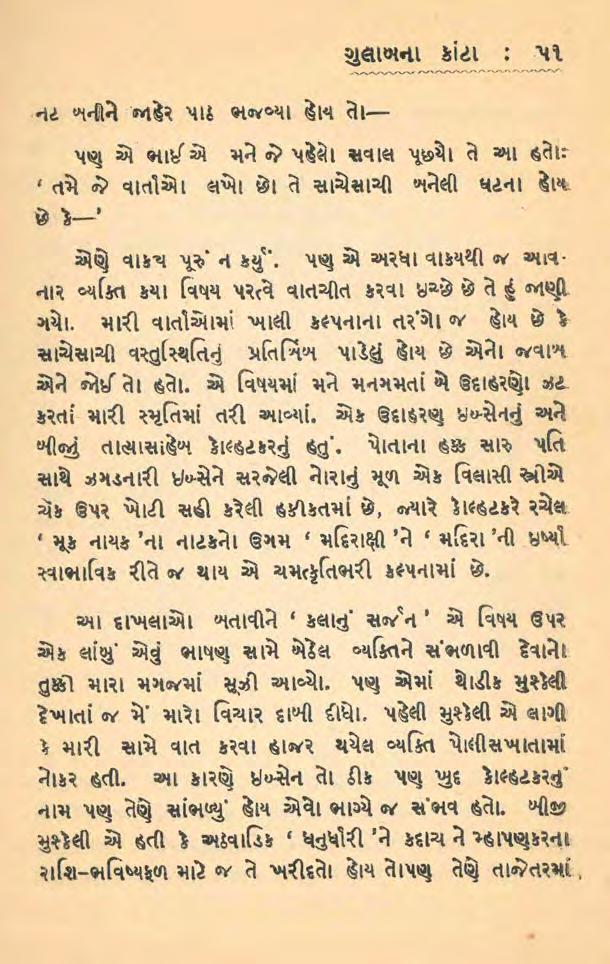 ગુલાબના કાંટા : ૫૧
નટ બનીને જાહેર પાઠ ભજવ્યા હોય તો—
પણ એ ભાઈએ મને જે પહેલો સવાલ પૂછયો તે આ હતોઃ
‘ તમે જે વાર્તાઓ લખો છો તે સાચેસાચી બનેલી ઘટના હોય
છે કે—’
એણે વાકય પૂરું ન કર્યું. પણ એ અરધા વાકયથી જ આવ-
નાર વ્યક્તિ કયા વિષય પરત્વે વાતચીત કરવા ઇચ્છે છે તે હું જાણી
ગયો. મારી વાર્તાઓમાં ખાલી કલ્પનાના તરંગો જ હોય છે કે
સાચેસાચી વસ્તુસ્થિતિનું પ્રતિબિંબ પાડેલું હોય છે એનો જવાબ
એને જોઈ તો હતો. એ વિષયમાં મને મનગમતાં બે ઉદાહરણો ઝટ
કરતાં મારી સ્મૃતિમાં તરી આવ્યાં. એક ઉદાહરણ ઇબ્સેનનું અને
બીજું તાત્યાસાહેબ કોલ્હટકરનું હતું. પોતાના હક્ક સારુ પતિ
સાથે ઝગડનારી ઇબ્સેને સરજેલી નોરાનું મૂળ એક વિલાસી સ્ત્રીએ
ચૅક ઉપર ખોટી સહી કરેલી હકીકતમાં છે, જ્યારે કોલ્હટકરે રચેલ
‘ મૂક નાયક ’ના નાટકનો ઉગમ ‘ મદિરાક્ષી ’ને ‘ મદિરા ’ની ઇર્ષ્યા
સ્વાભાવિક રીતે જ થાય એ ચમત્કૃતિભરી કલ્પનામાં છે.
આ દાખલાઓ બતાવીને ‘ કલાનું સર્જન ’ એ વિષય ઉપર
એક લાંબું એવું ભાષણ સામે બેઠેલ વ્યક્તિને સંભળાવી દેવાનો
તુક્કો મારા મગજમાં સૂઝી આવ્યો. પણ એમાં થોડીક મુશ્કેલી
દેખાતાં જ મેં મારો વિચાર દાબી દીધો. પહેલી મુશ્કેલી એ લાગી
કે મારી સામે વાત કરવા હાજર થયેલ વ્યક્તિ પોલીસખાતામાં
નોકર હતી. આ કારણે ઇબ્સેન તો ઠીક પણ ખુદ કોલ્હટકરનું
નામ પણ તેણે સાંભળ્યું હોય એવો ભાગ્યે જ સંભવ હતો. બીજી
મુશ્કેલી એ હતી કે અઠવાડિક ‘ ધનુર્ધારી ’ને કદાચ ને મ્હાપણકરના
રાશિ-ભવિષ્યફળ માટે જ તે ખરીદતો હોય તોપણ તેણે તાજેતરમાં